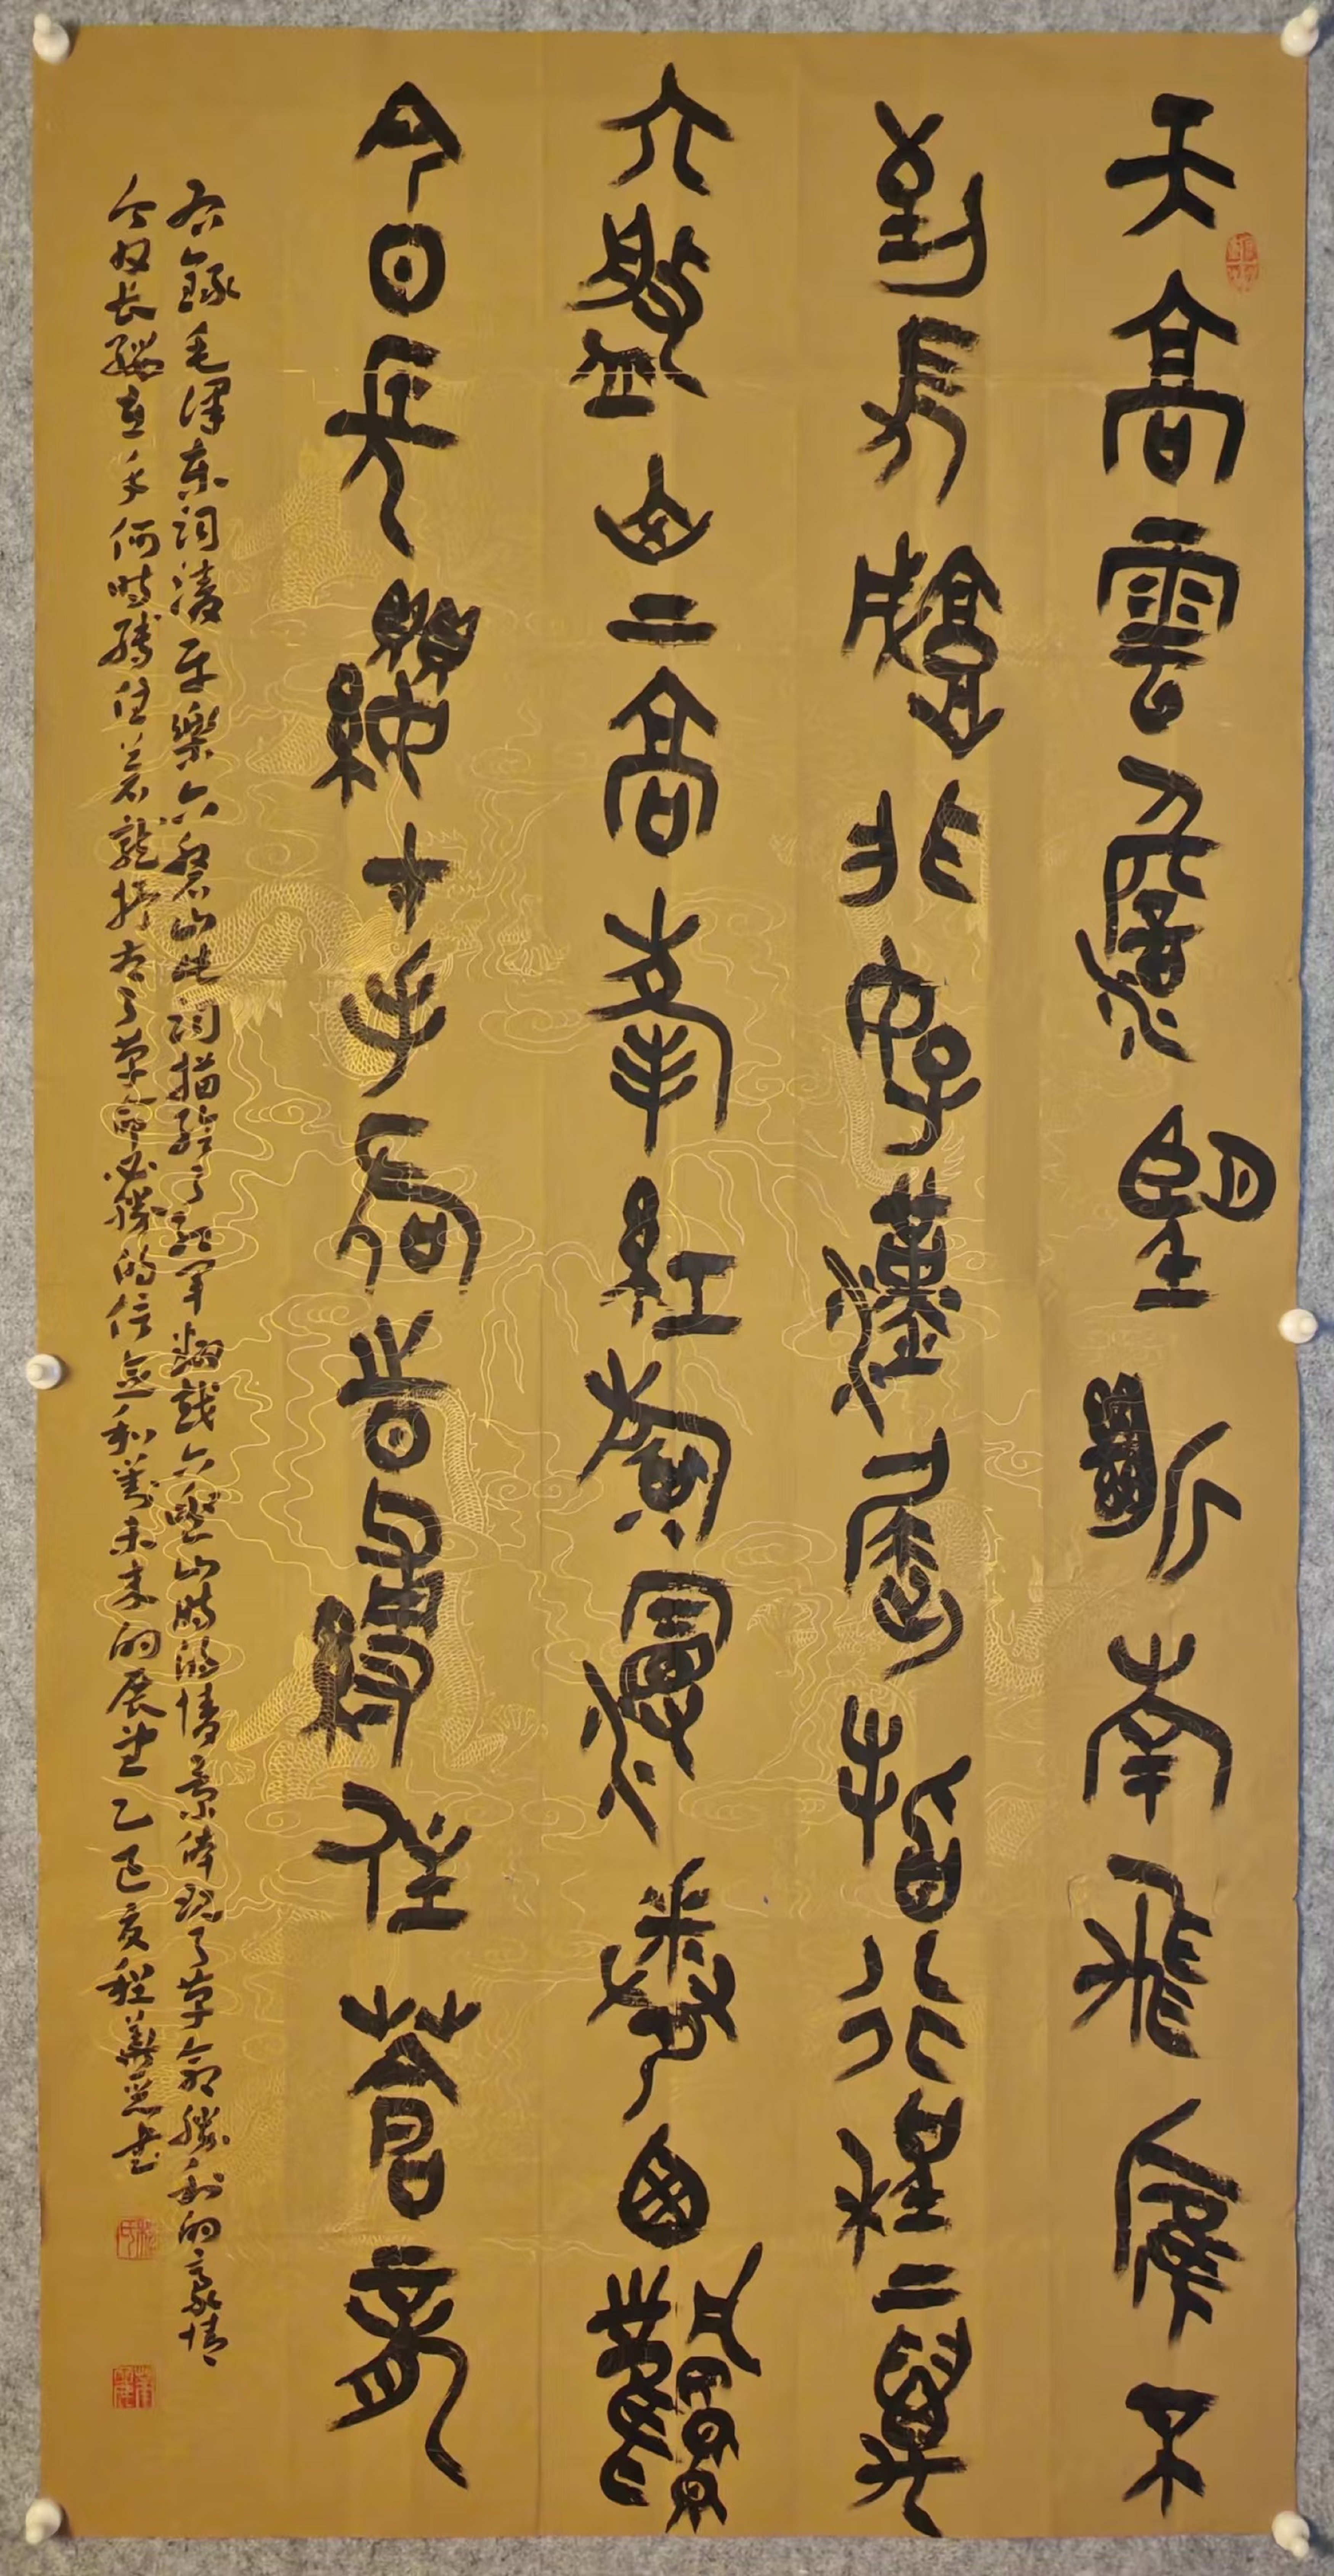 天高雲澹望斷南飛雁不
到長城非好漢屈指行程二萬
六盤山上高峰紅旗漫卷西風
今日長纓在手何時縛住蒼龍
右錄毛澤东词清平樂六盤山此词描繪了红军翻越六盤山時的情景体现了革命勝利的豪情
今日长纓在手何時縛住苍龍抒发了革命必勝的信念和對未来的展望乙巳夏程